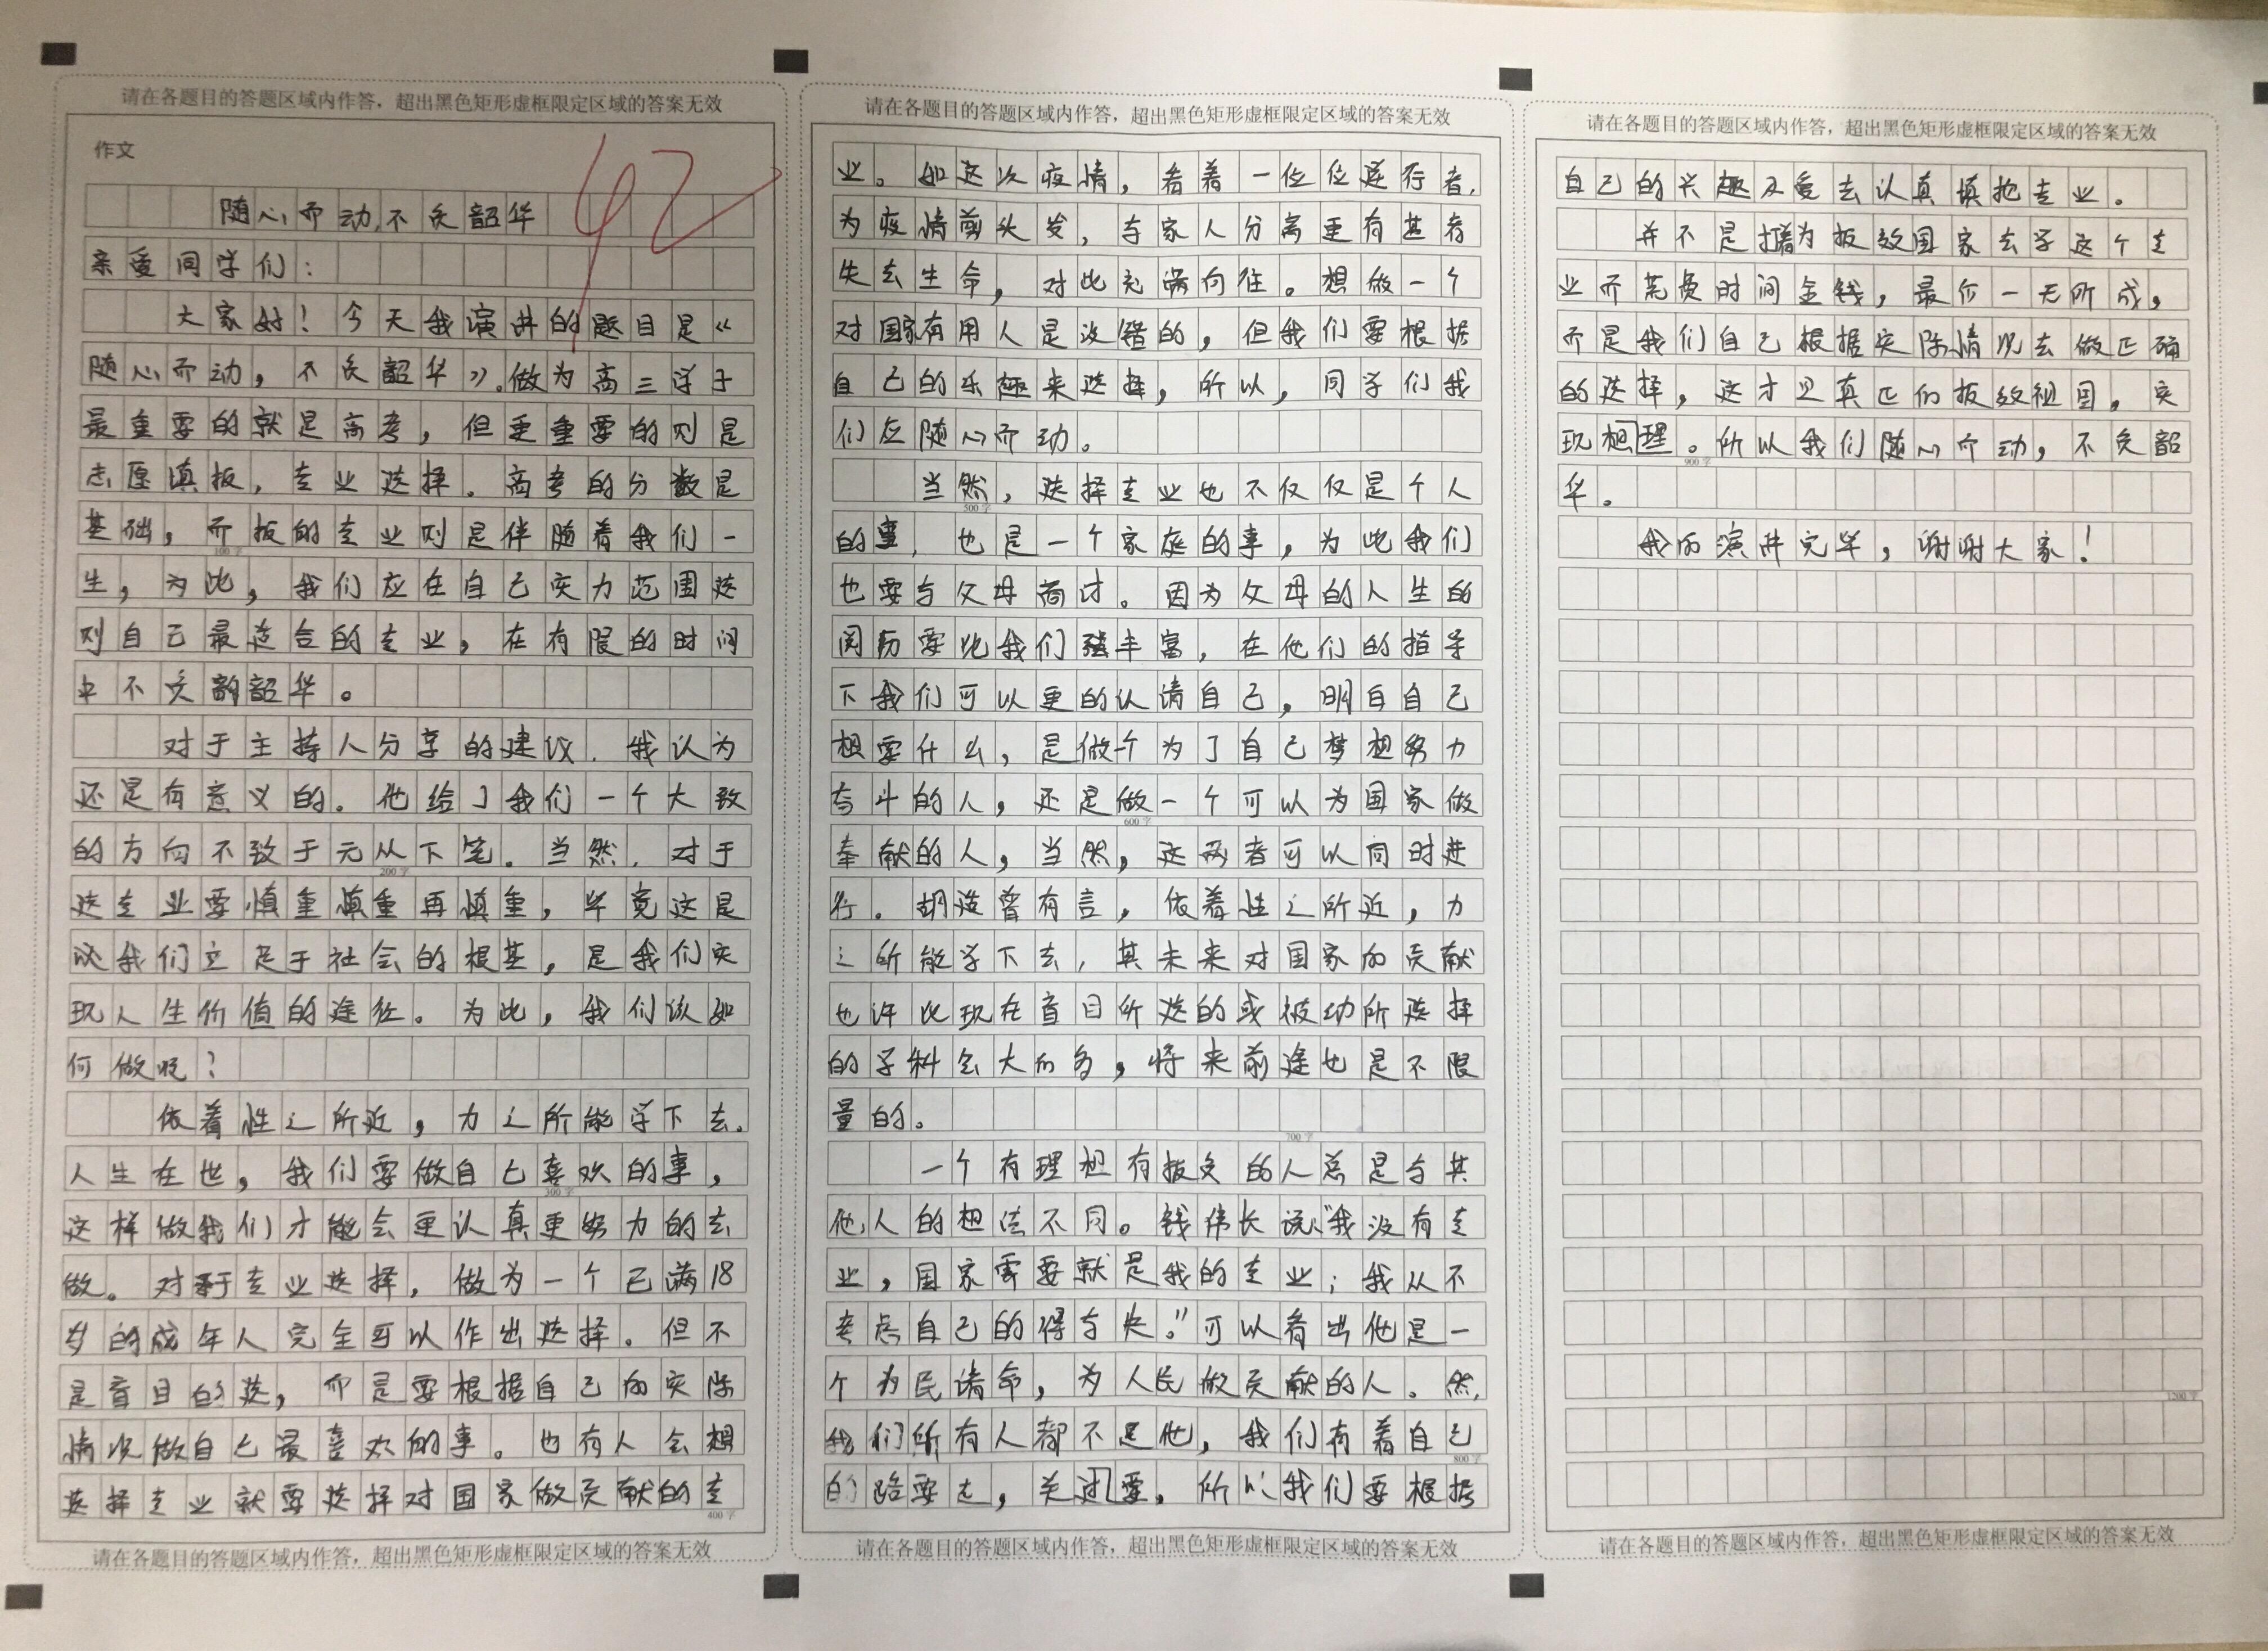 请在各题目的答题区域内作答，超出黑色矩形虚框限定区域的答案无效
作文
42
随心而动,不负韶华
亲爱同学们：
大家好！今天我演讲的题目是《
随心而动，不负韶华》。做为高三学子
最重要的就是高考，但更重要的则是
志愿填报，专业选择。高考的分数是
基础，而报的专业则是伴随着我们一
100字
生，为此，我们应在自己实力范围选
则自己最适合的专业，在有限的时间
中不负韶华。
对于主持人分享的建议，我认为
还是有意义的。他给了我们一个大致
的方向不致于无从下笔。当然，对于
200字
选专业要慎重慎重再慎重，毕竟这是
我们立足于社会的根基，是我们实
现人生价值的途径。为此，我们该如
何做呢？
依着性之所近，力之所能学下去。
人生在世，我们要做自己喜欢的事，
300字
这样做我们才能会更认真更努力的去
做。对于专业选择，做为一个已满18
岁的成年人完全可以作出选择。但不
是盲目的选，而是要根据自己的实际
情况做自己最喜欢的事。也有人会想
选择专业就要选择对国家做贡献的专
400字
请在各题目的答题区域内作答，超出黑色矩形虚框限定区域的答案无效
请在各题目的答题区域内作答，超出黑色矩形虚框限定区域的答案无效
业。如这次疫情，看着一位位逆行者，
为疫情剪头发，与家人分离更有甚者
失去生命，对此充满向往。想做一个
对国家有用人是没错的，但我们要根据
自己的乐趣来选择，所以，同学们我
们应随心而动。
当然，选择专业也不仅仅是个人
500字
的事，也是一个家庭的事，为此我们
也要与父母商讨。因为父母的人生的
阅历要比我们丰富，在他们的指导
下我们可以更的认清自己，明白自己
想要什么，是做个为了自己梦想努力
奋斗的人，还是做一个可以为国家做
600字
奉献的人，当然，这两者可以同时进
行。胡适曾有言，依着性之所近，力
之所能学下去，其未来对国家的贡献
也许比现在盲目所选的或被动所选择
的学科会大的多，将来前途也是不限
量的。
700字
一个有理想有报负的人总是与其
他人的想法不同。钱伟长说："我没有专
业，国家需要就是我的专业；我从不
考虑自己的得与失。"可以看出他是一
个为民请命，为人民做贡献的人。然，
我们所有人都不是他，我们有着自己
800字
的路要走，关进要。所以我们要根据
请在各题目的答题区域内作答，超出黑色矩形虚框限定区域的答案无效
请在各题目的答题区域内作答，超出黑色矩形虚框限定区域的答案无效
自己的兴趣及爱去认真填抱专业。
并不是为报效国家去学这个专
业而荒费时间金钱，最价一无所成，
而是我们自己根据实际情况去做正确
的选择，这才是真正的报效祖国，实
现想理。所以我们随心而动，不负韶
900字
华。
我的演讲完毕，谢谢大家！
1200字
请在各题目的答题区域内作答，超出黑色矩形虚框限定区域的答案无效